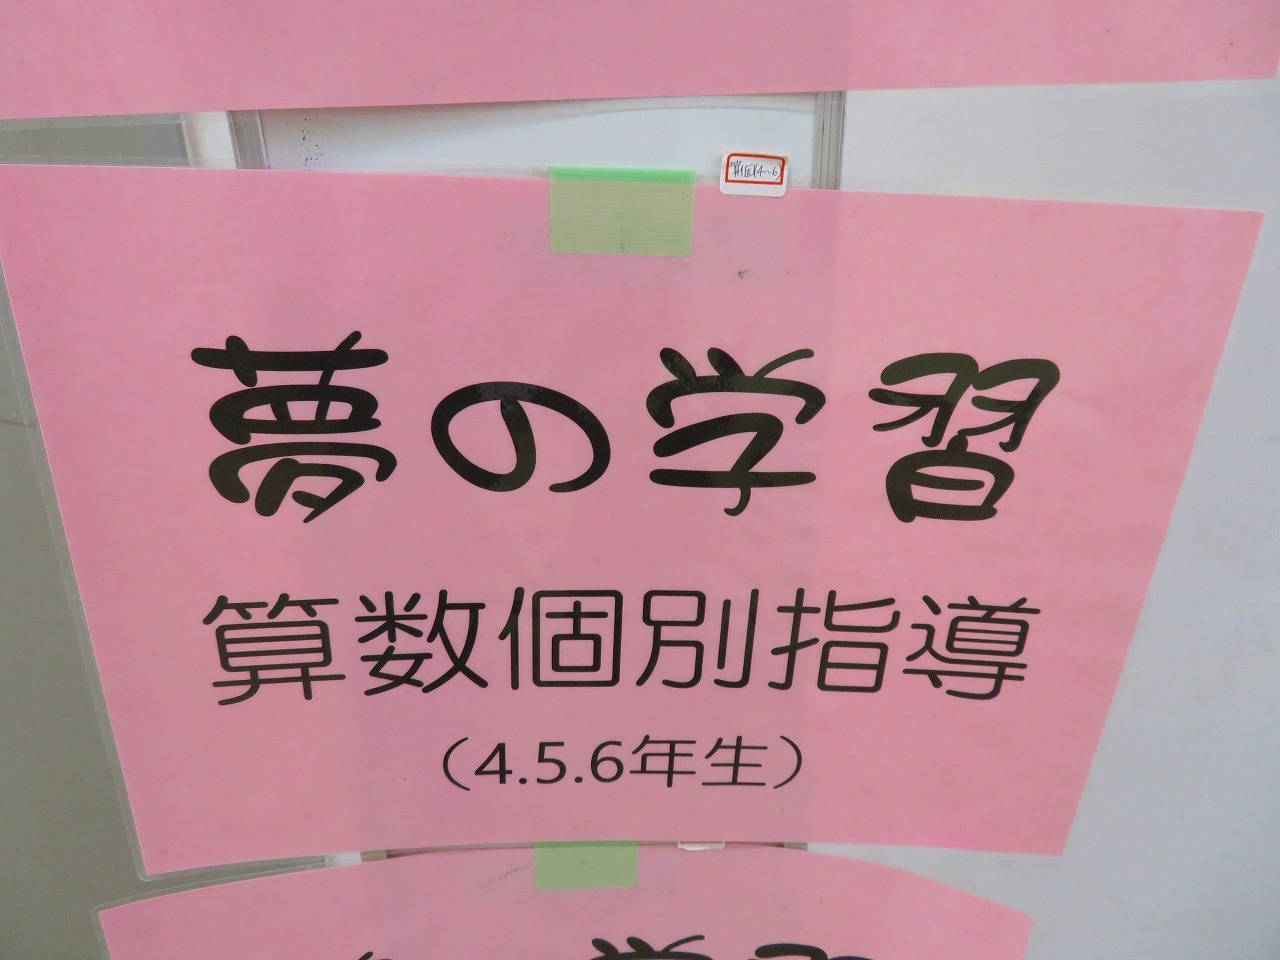 夢の学習
算数個別指導
（4.5.6年生）